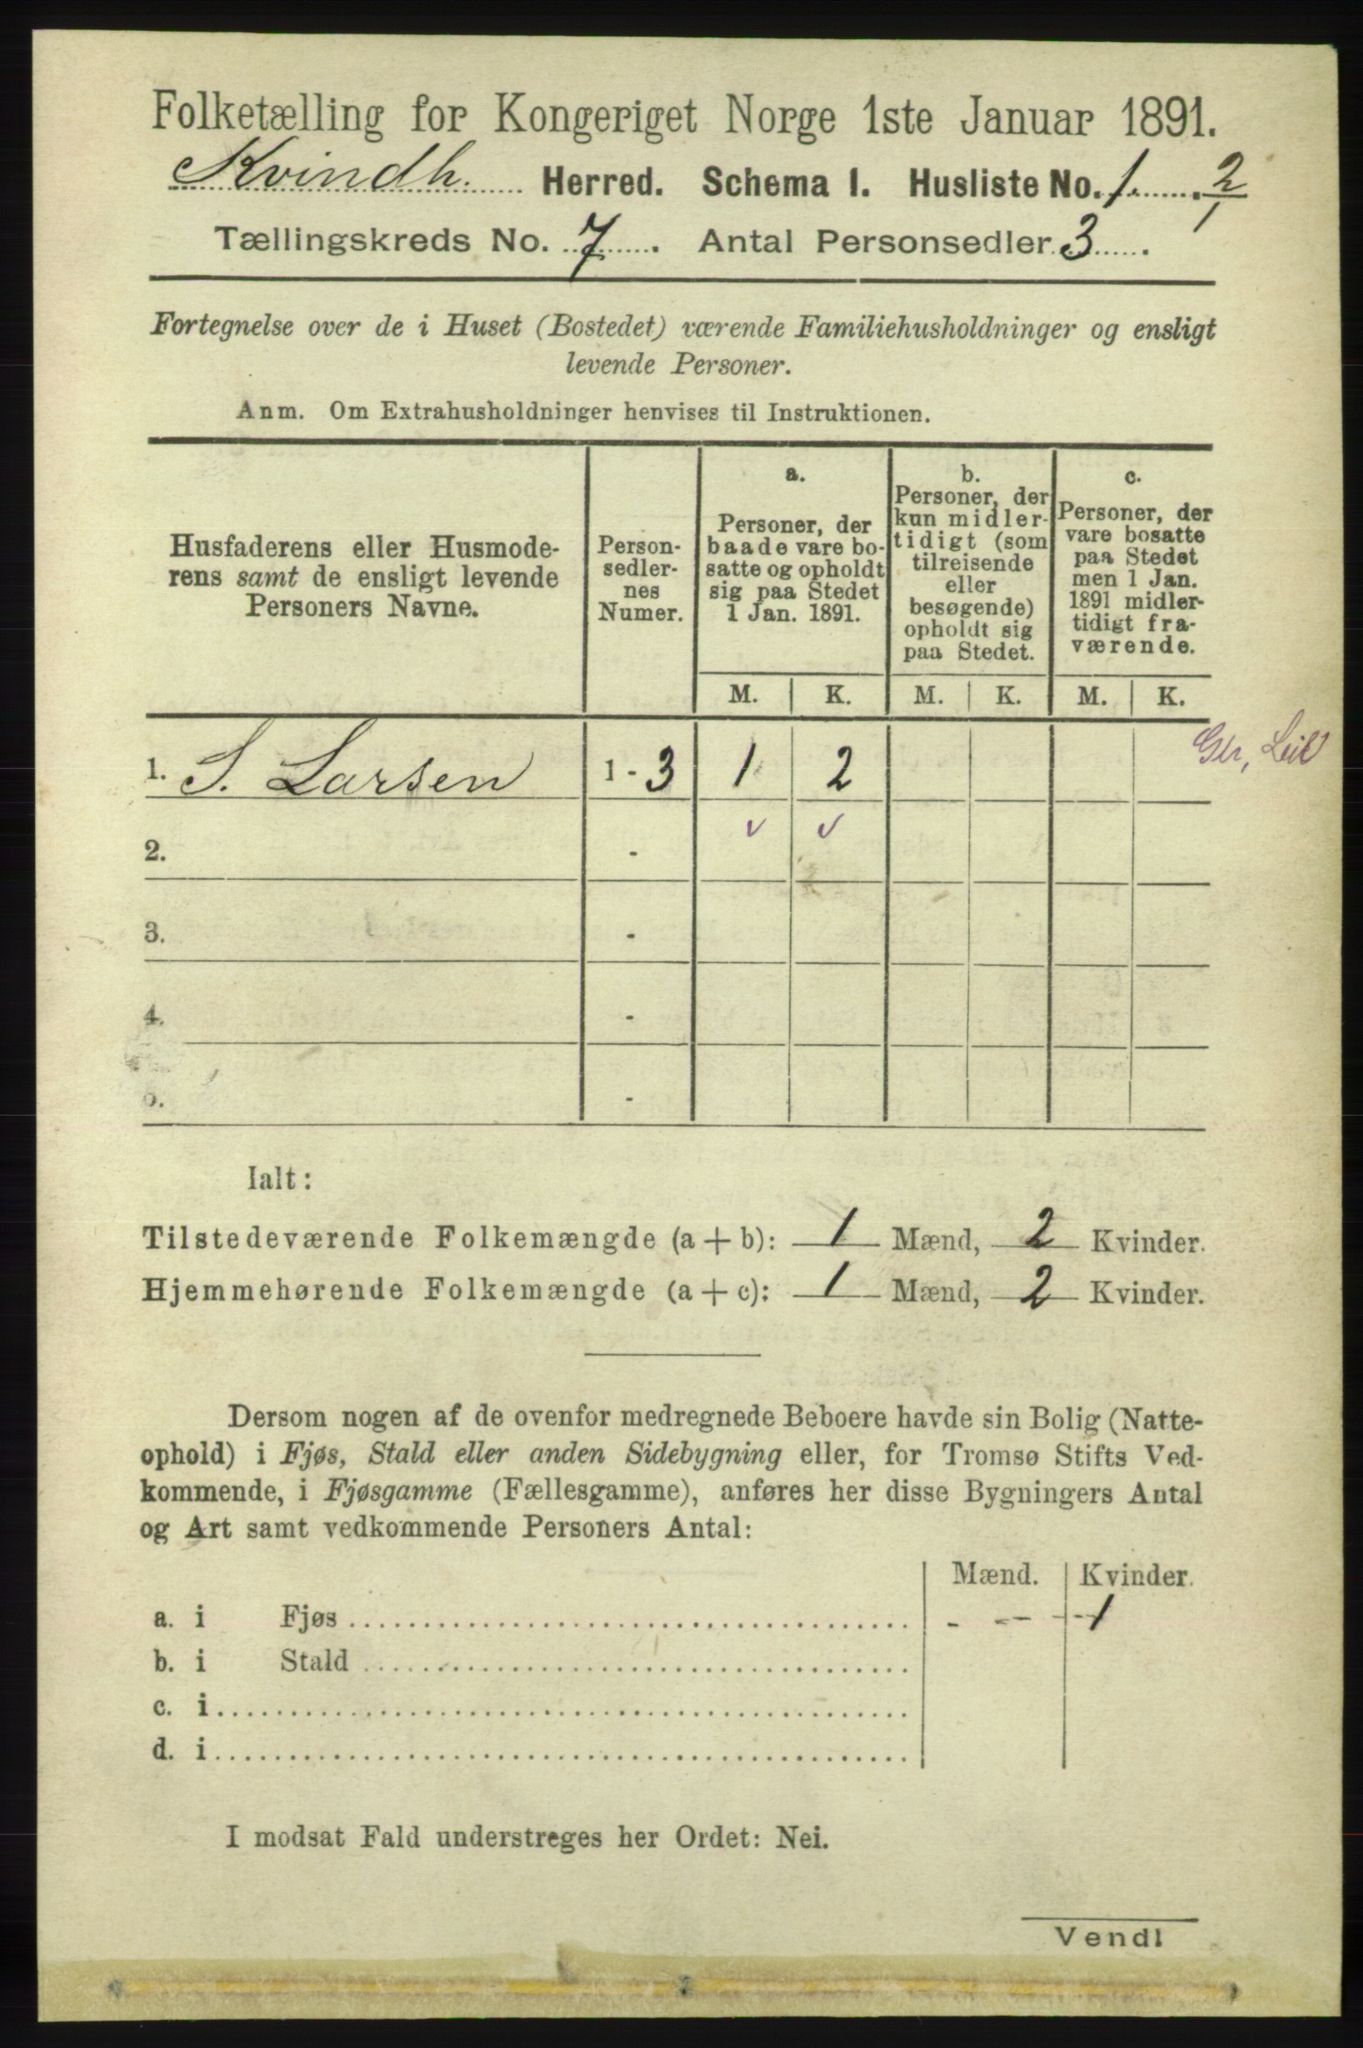 Folketælling for Kongeriget Norge 1ste Januar 1891.
Kvindh. Herred. Schema I. Husliste No. 1. 2/1
Tællingskreds No. 7. Antal Personsedler 3.
Fortegnelse over de i Huset (Bostedet) værende Familiehusholdninger og ensligt
levende Personer.
Anm. Om Extrahusholdninger henvises til Instruktionen.
Husfaderens eller Husmode-
rens samt de ensligt levende
Personers Navne.
Person-
sedler-
nes
Numer.
a.
Personer, der
baade vare bo-
satte og opholdt
sig paa Stedet
1 Jan. 1891.
b.
Personer, der
kun midler-
tidigt (som
tilreisende
eller
besøgende)
opholdt sig
paa Stedet.
c.
Personer, der
vare bosatte
paa Stedet
men 1 Jan.
1891 midler-
tidigt fra-
værende.
M. K. M. K. M. K.
1. S. Larsen 1 - 3 1 2
2. -
3. -
4. -
5. -
Ialt:
Tilstedeværende Folkemængde (a + b): 1 Mænd, 2 Kvinder.
Hjemmehørende Folkemængde (a + c): 1 Mænd, 2 Kvinder.
Dersom nogen af de ovenfor medregnede Beboere havde sin Bolig (Natte-
ophold) i Fjøs, Stald eller anden Sidebygning eller, for Tromsø Stifts Ved-
kommende, i Fjøsgamme (Fællesgamme), anføres her disse Bygningers Antal
og Art samt vedkommende Personers Antal:
Mænd. Kvinder.
a. i Fjøs - -- -- 1
b. i Stald
c. i
d. i
I modsat Fald understreges her Ordet: Nei.
Vend!